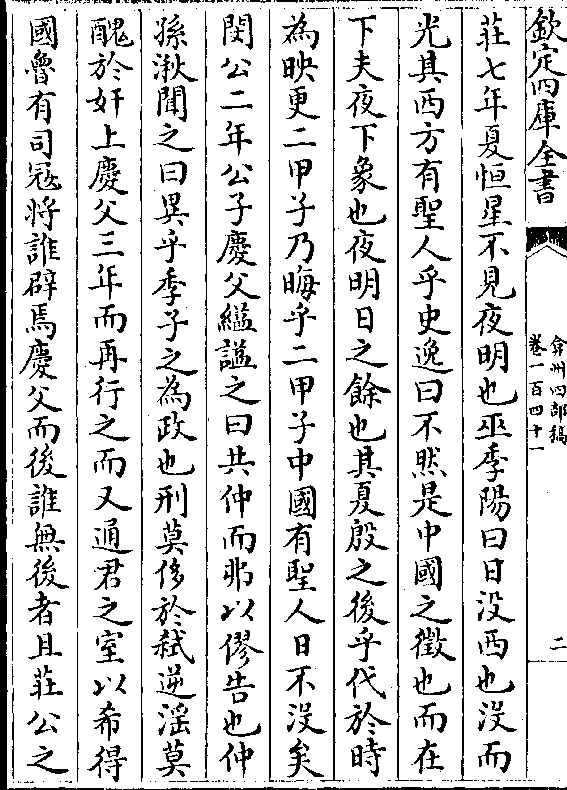 欽定四庫全書
弇州四部稿
卷一百四十一
二
莊七年夏恒星不見夜明也巫季陽曰日没西也没而
光其西方有聖人乎史逸曰不然是中國之徵也而在
下夫夜下象也夜明日之餘也其夏殷之後乎代於時
為映更二甲子乃晦乎二甲子中國有聖人日不没矣
閔公二年公子慶父縊諡之曰共仲而非以僇告也仲
孫湫聞之曰異乎季子之為政也刑莫侈於弑逆滛莫
醜於奸上慶父三年而再行之而又通君之室以希得
國魯有司冦将誰辟焉慶父而後誰無後者且莊公之